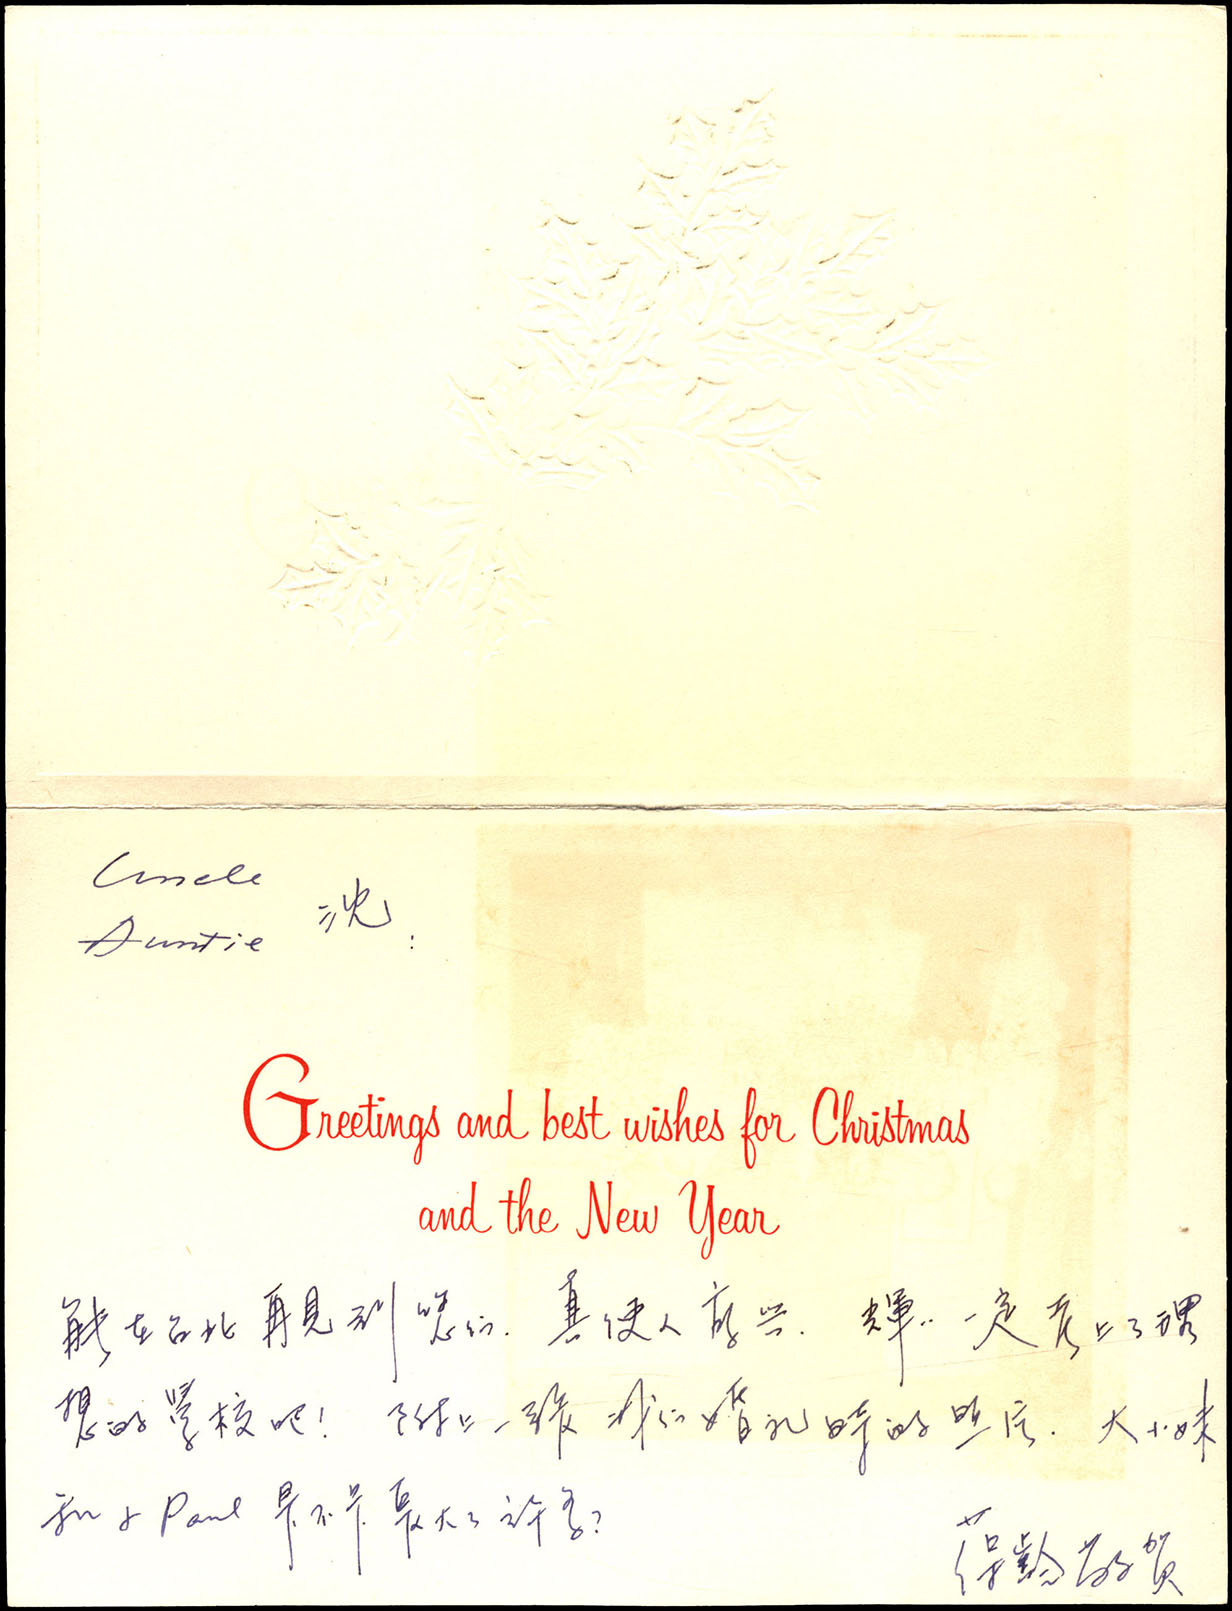 Uncle
Auntie 沈:
Greetings and best wishes for Christmas
and the New Year
能在台北再見到您们. 真使人高兴. 輝.. 一定考上了理
想的学校吧! 附上一張我们婚礼時的照片. 大小妹
和小Paul是不是長大了許多?
敬賀